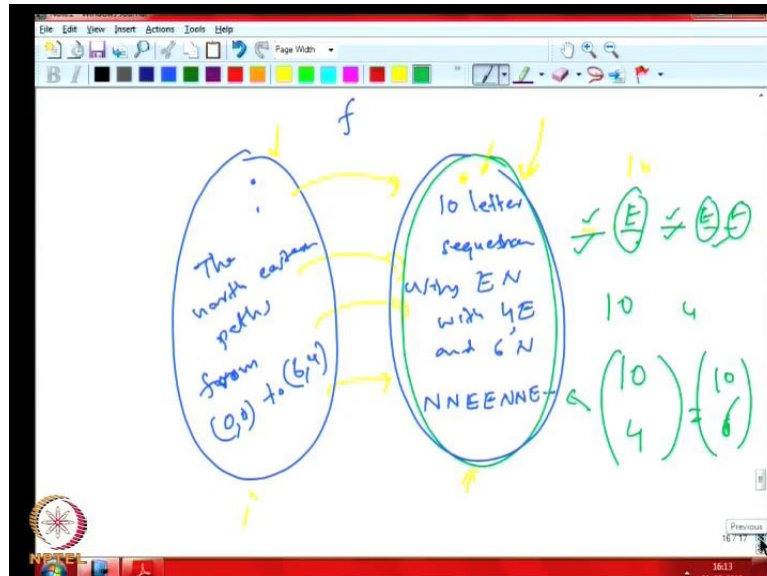 File Edit View Insert Actions Tools Help
Page Width
B I
f
10
The
north eastern
paths
from
(0,0) to (6,4)
10 letter
sequences
using EN
with 4E
and 6 N
NNEENNE--
E E E
10 4
(10 4) = (10 6)
Previous
16 / 17
NPTEL
16:13